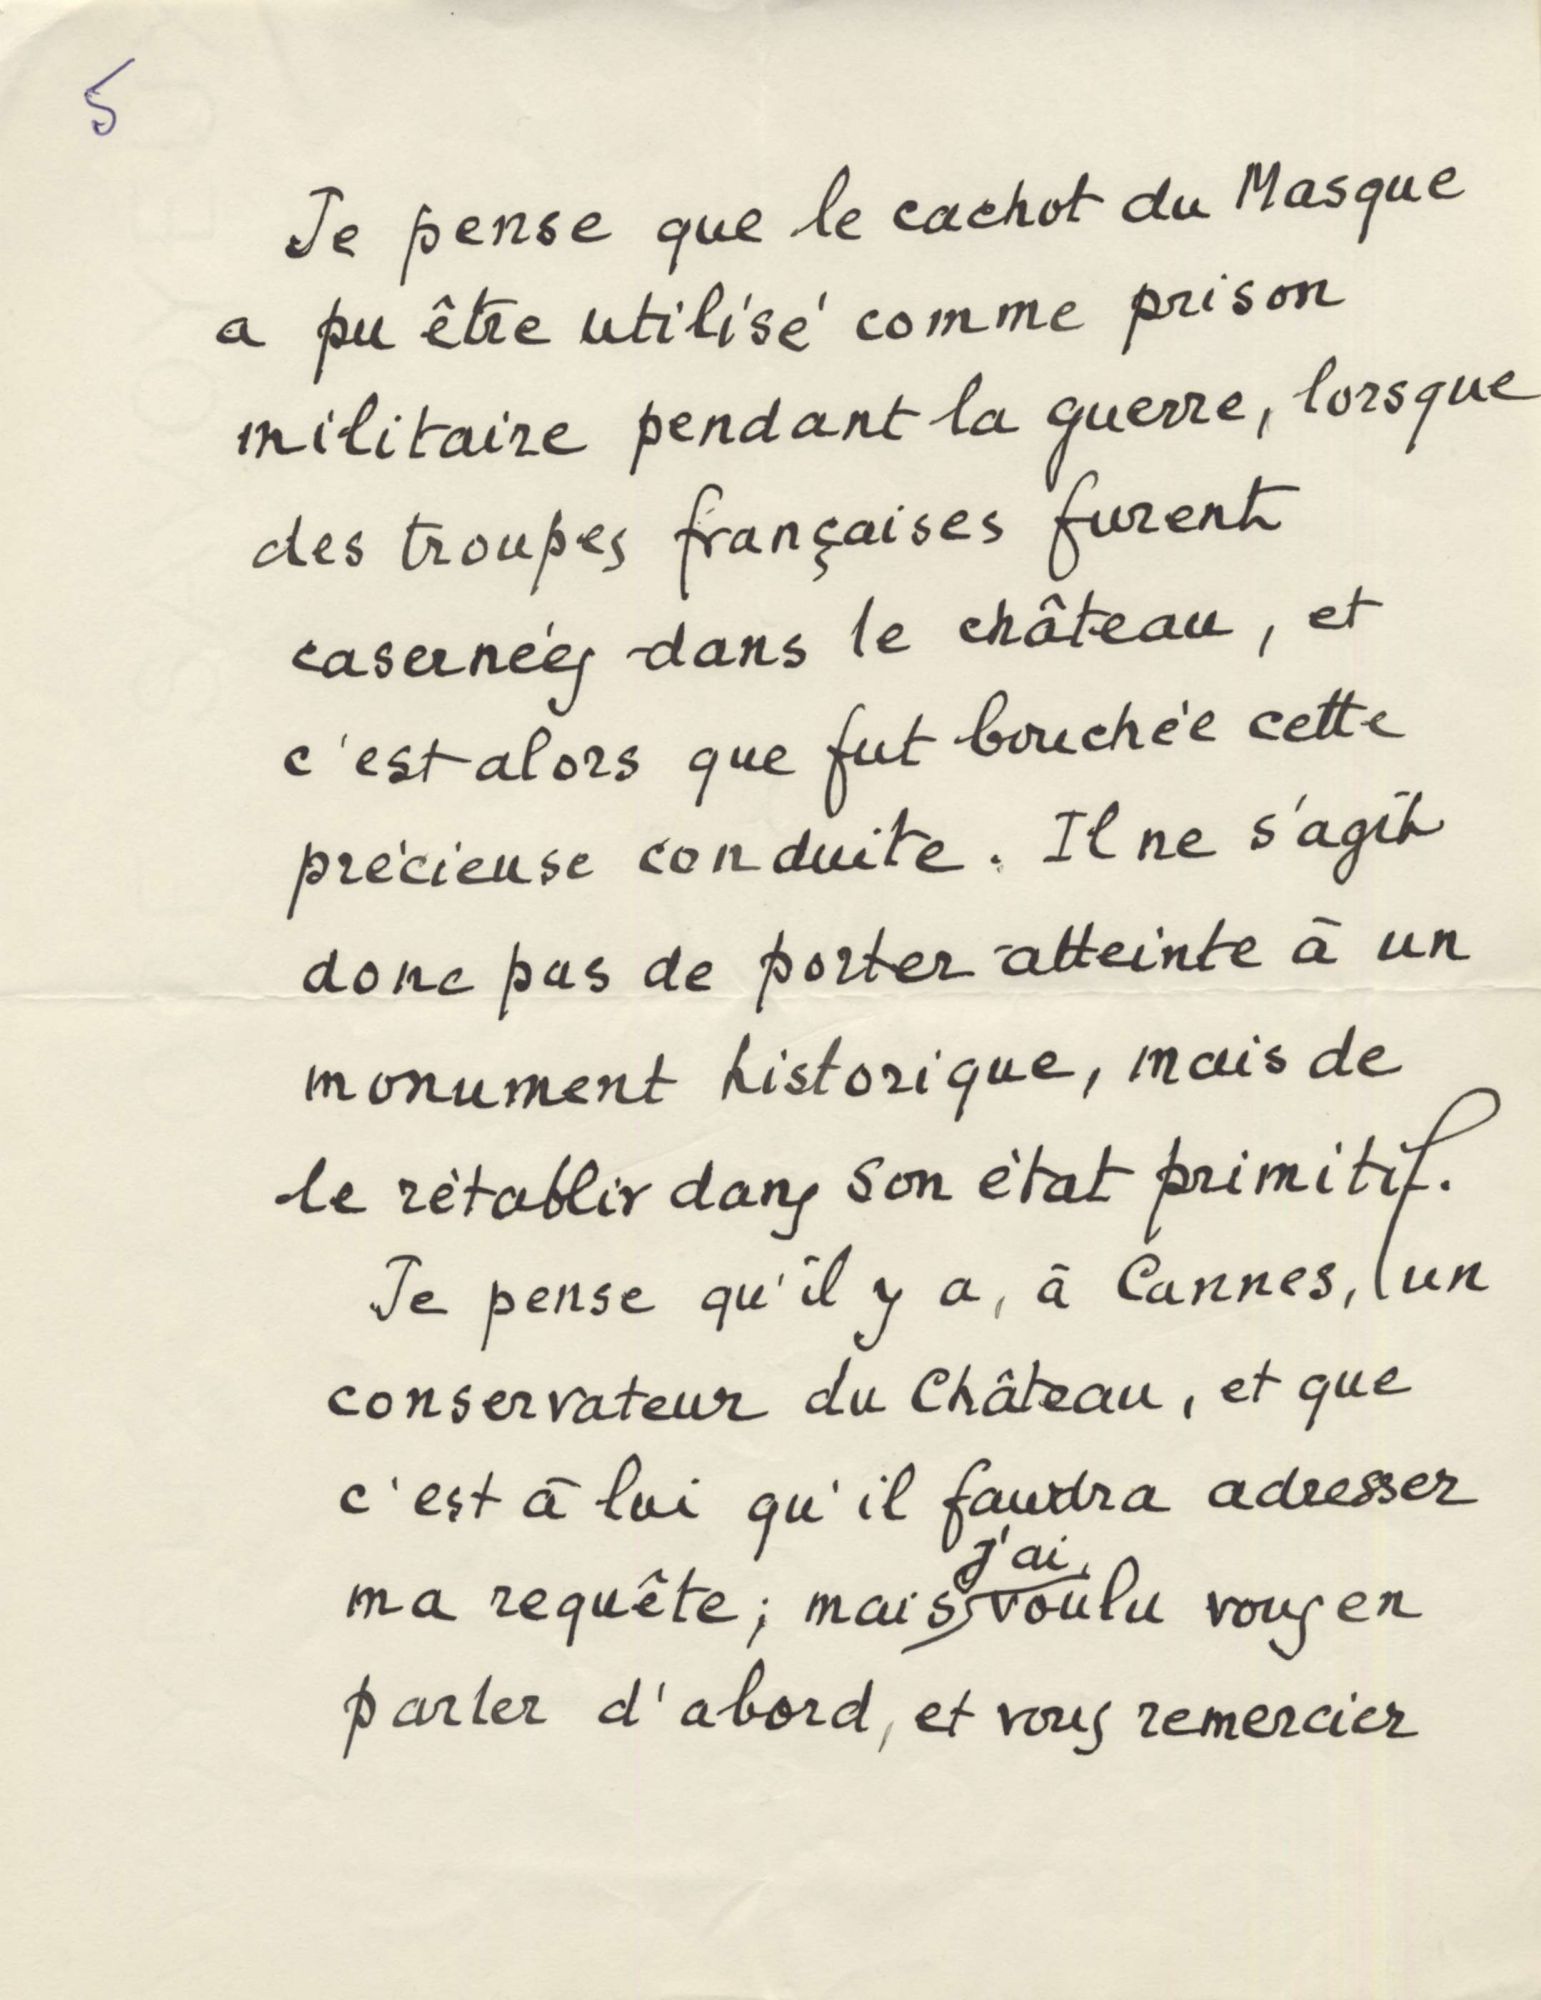 5
Je pense que le cachot du Masque
a pu être utilisé comme prison
militaire pendant la guerre, lorsque
des troupes françaises furent
casernées dans le château, et
c'est alors que fut bouchée cette
précieuse conduite. Il ne s'agit
donc pas de porter atteinte à un
monument historique, mais de
le rétablir dans son état primitif.
Je pense qu'il y a, à Cannes, un
conservateur du Château, et que
c'est à lui qu'il faudra adresser
ma requête ; mais j'ai voulu vous en
parler d'abord, et vous remercier